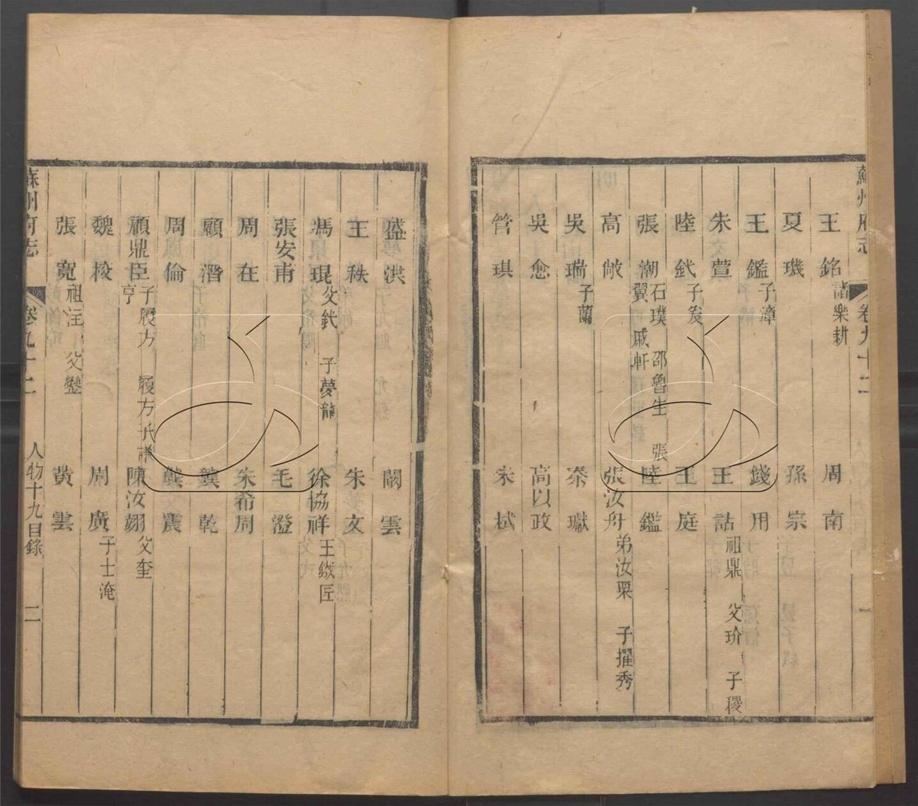 蘇州府志 卷九十二 一
王銘 諸樂耕 周南
夏璣 孫宗
王鑑 子漳 錢用
朱萱 王詁 祖鼎 父玠 子稷
陸釴 子岌 王庭
張潮 石璞 邵魯生 張翼 戚軒 陸鑑
高敞 張汝舟 弟汝栗 子擢秀
吳瑞 子蘭 秦瓛
吳愈 高以政
管琪 朱栻
盛洪 閻雲
王秩 朱文
馮琨 父釴 子夢龍 徐協祥 王綍 匠
張安甫 毛澄
周在 朱希周
顧潛 龔乾
周倫 龔震
顧鼎臣 子履方 履方子 亨 陳汝翮 父奎
魏校 周廣 子士淹
張寬 祖注 父鑾 黃雲
蘇州府志 卷九十二 人物十九目錄 二